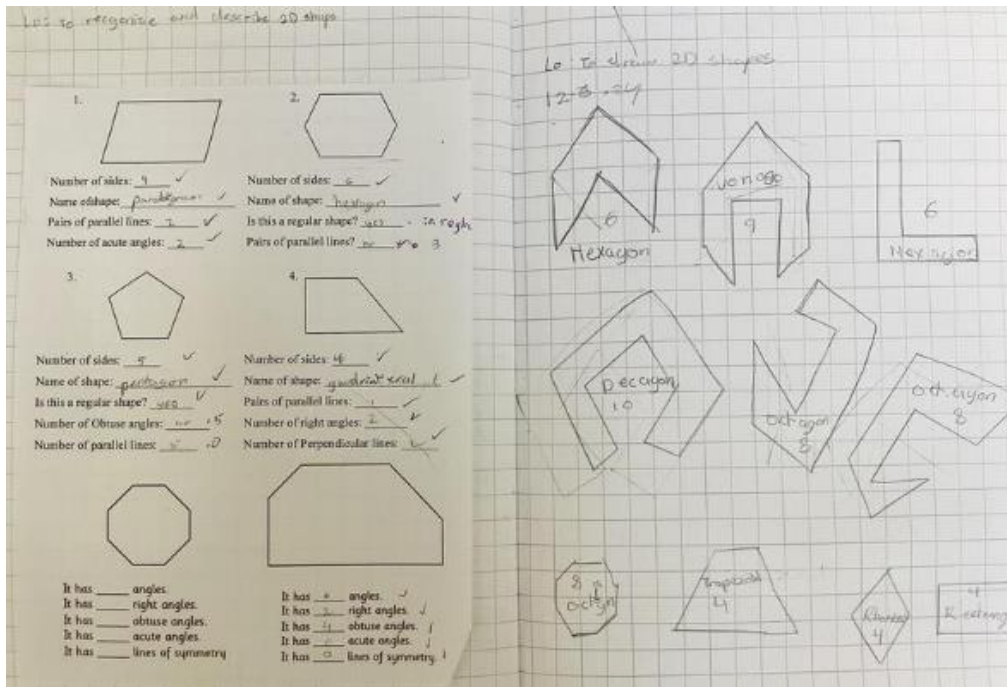 Lo: to recognise and describe 2D shaps
1.
Number of sides: 4 ✓
Name of shape: ✓
Pairs of parallel lines: 2 ✓
Number of acute angles: 2 ✓
2.
Number of sides: 6 ✓
Name of shape: hexagon ✓
Is this a regular shape? yes
Pairs of parallel lines? 3
3.
Number of sides: 5 ✓
Name of shape: pentagon ✓
Is this a regular shape? yes ✓
Number of Obtuse angles: 5
Number of parallel lines: 0
4.
Number of sides: 4 ✓
Name of shape: ✓
Pairs of parallel lines: 1 ✓
Number of right angles: 2 ✓
Number of Perpendicular lines: ✓
It has ____ angles.
It has ____ right angles.
It has ____ obtuse angles.
It has ____ acute angles.
It has ____ lines of symmetry
It has angles.
It has 2 right angles.
It has 4 obtuse angles.
It has acute angles.
It has 0 lines of symmetry.
Lo To draw 2D shapes
6
Hexagon
9
6
Hexagon
Decagon
10
Octagon
8
Octagon
8
8
Trapezoid
4
4
4